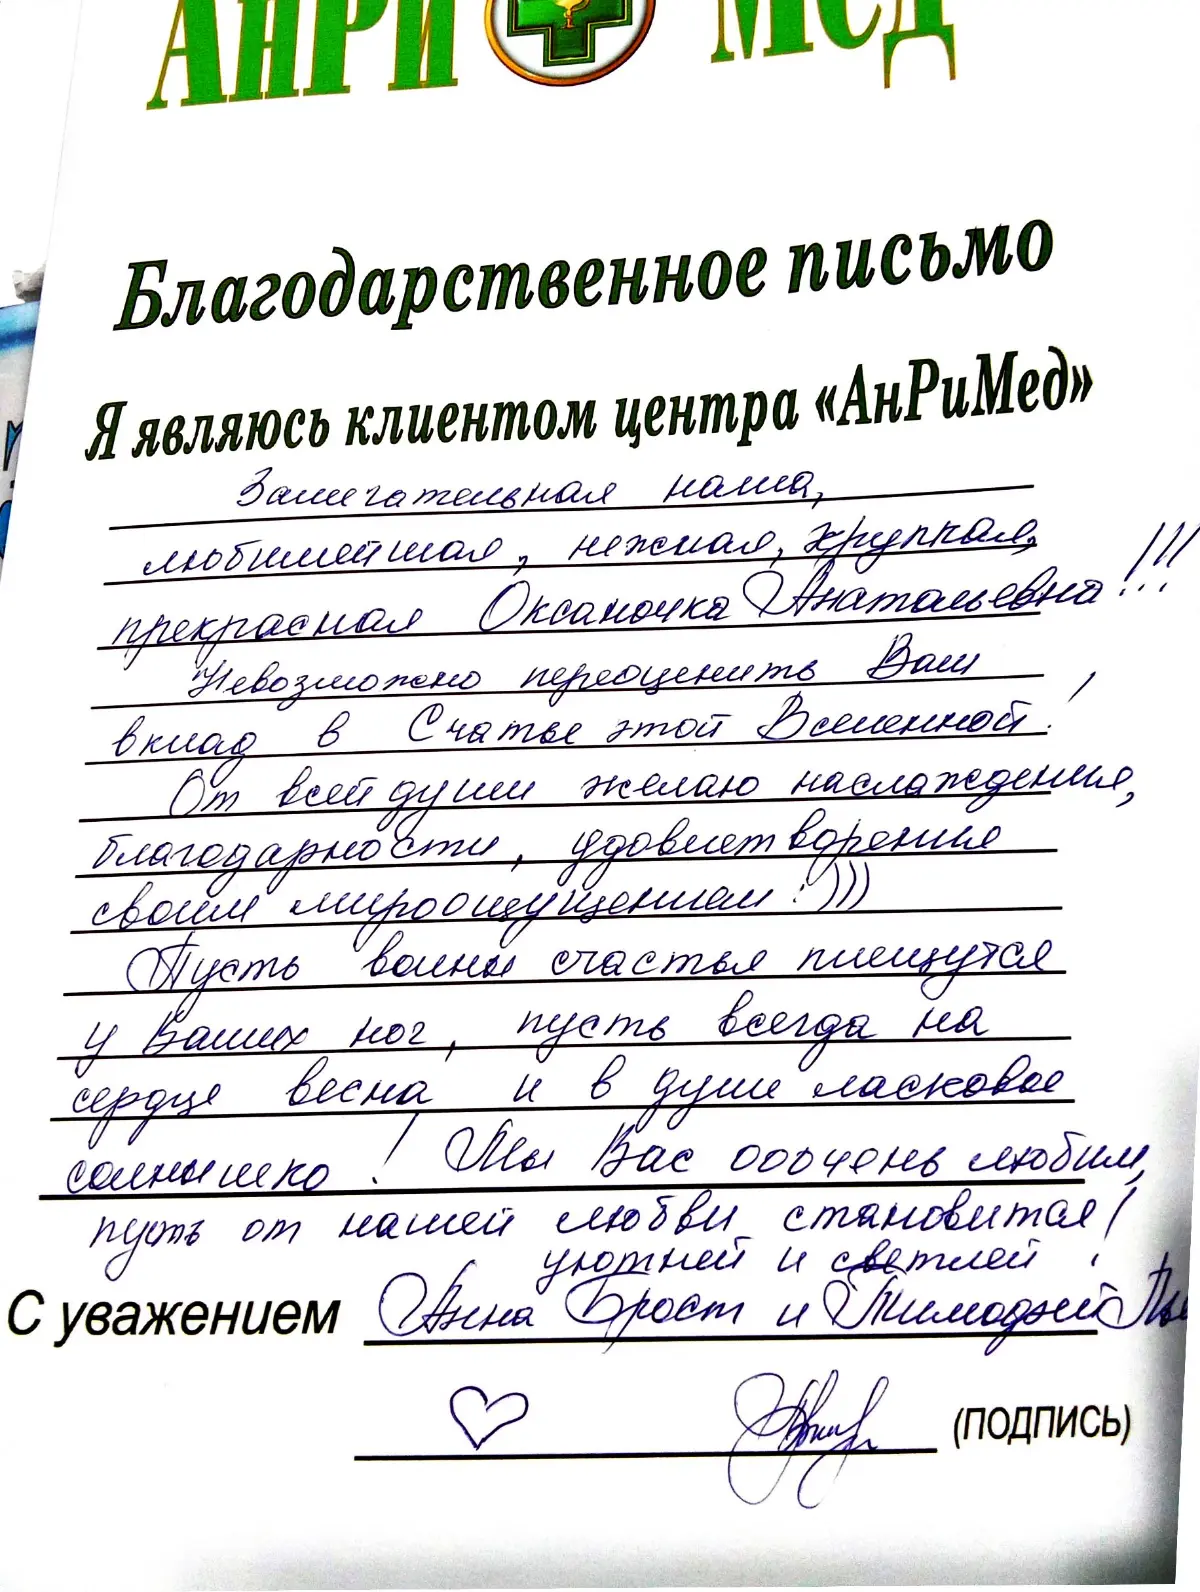 АнРи Мед
Благодарственное письмо
Я являюсь клиентом центра «АнРиМед»
Замечательная наша,
любимейшая, нежная, хрупкая,
прекрасная Оксаночка Анатольевна!!!
Невозможно переоценить Ваш
вклад в Счастье этой Вселенной!
От всей души желаю наслаждения,
благодарности, удовлетворения
своим мироощущением :)))
Пусть волны счастья плещутся
у Ваших ног, пусть всегда на
сердце весна и в душе ласковое
солнышко! Мы Вас оооочень любим,
пусть от нашей любви становится
уютней и светлей!
С уважением Анна Брост и Тимофей
(ПОДПИСЬ)